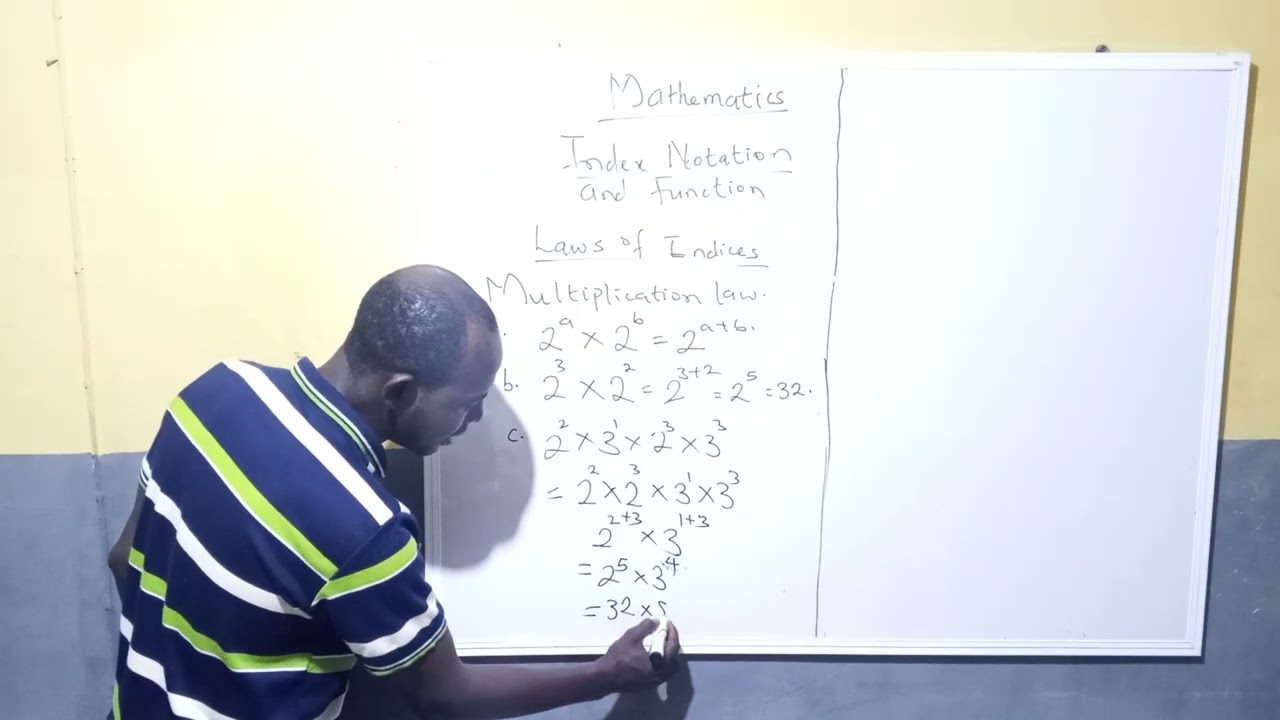 Mathematics
Index Notation
and function
Laws of Indices
Multiplication law.
2ᵃ × 2ᵇ = 2ᵃ⁺ᵇ.
b. 2³ × 2² = 2³⁺² = 2⁵ = 32.
c. 2² × 3¹ × 2³ × 3³
= 2² × 2³ × 3¹ × 3³
2²⁺³ × 3¹⁺³
= 2⁵ × 3⁴
= 32 ×